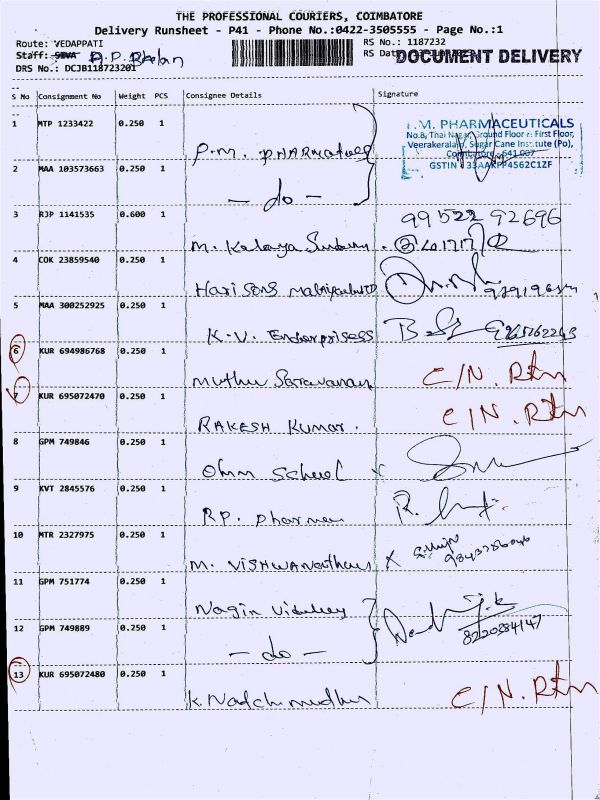 THE PROFESSIONAL COURIERS, COIMBATORE
Delivery Runsheet - P41 - Phone No.:0422-3505555 - Page No.:1
Route: VEDAPPATI
RS No.: 1187232
Staff:
RS Dat
DOCUMENT DELIVERY
DRS No.: DCJB118723201
S No Consignment No Weight PCS Consignee Details Signature
1 MTP 1233422 0.250 1 P.M. PHARMATUES
.M. PHARMACEUTICALS
No.8, Thai Nagar Ground Floor & First Floor,
Veerakeralam, Sugar Cane Institute (Po),
Coimbatore - 641 007
GSTIN : 33AAKFP4562C1ZF
2 MAA 103573663 0.250 1 - do -
3 RJP 1141535 0.600 1 M. Kalaya Sundary. 99522 92696
4 COK 23859540 0.250 1 Hari Sons
5 MAA 300252925 0.250 1 K.V. Enterprisess
6 KUR 694986768 0.250 1 Muthu Saravanan C/N. Rtn
7 KUR 695072470 0.250 1 RAKESH KUMAR. C/N. Rtn
8 GPM 749846 0.250 1 Ohm School x
9 KVT 2845576 0.250 1 RP. Pharma
10 MTR 2327975 0.250 1 M. VISHWANathan x 9843786046
11 GPM 751774 0.250 1 Nagin
12 GPM 749889 0.250 1 - do - 8220584147
13 KUR 695072480 0.250 1 K. Natchimuthu C/N. Rtn